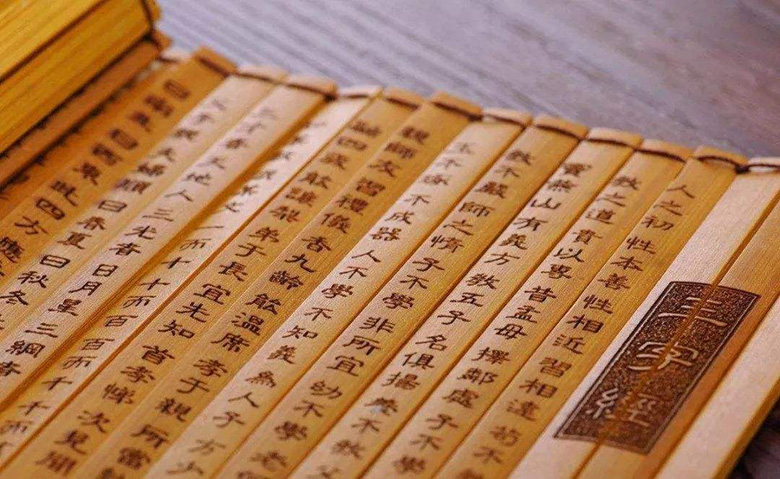 三字經
人之初性本善性相近習相遠苟不
教之道貴以專昔孟母擇鄰處子不學
竇燕山有義方教五子名俱揚養不教父
教不嚴師之惰子不學非所宜幼不學老何
玉不琢不成器人不學不知義為人子方少
親師友習禮儀香九齡能溫席孝于親所當
融四歲能讓梨弟子長宜先知首孝悌次見聞
一而十十而百百而千千而
三才者天地人三光者日月星三綱者
夫婦順曰春夏曰秋冬
此四方應